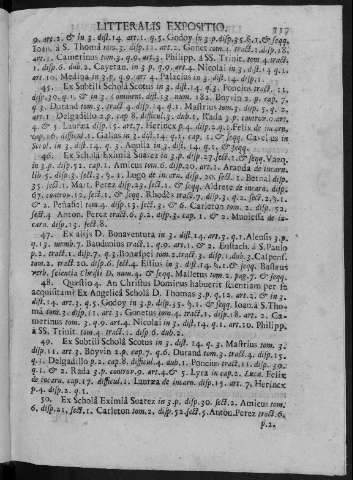 LITTERALIS EXPOSITIO. 317
9. art. 2. & in 3. dist. 14. art. 1. q. 5. Godoy in 3. p. disp. 35. §. 1. & seqq.
Ioan. à S. Thoma tom. 3. disp. 11. art. 2. Gonet tom. 1. tract. 1. disp. 18.
art. 1. Camerinus tom. 3. q. 9. art. 3. Philipp. à SS. Trinit. tom. 4. tract.
1. disp. 6. dub. 2. Cayetan. in 3. p. q. 9. art. 4. Nicolai in 3. dist. 14 q. 1.
art. 10. Medina in 3. p. q. 9. art 4. Palacios in 3. dist. 14. disp. 1.
45. Ex Subtili Scholâ Scotus in 3. dist. 14. q. 3. Poncius tract. 11.
disp. 39. q. 1. & in Comment. dist. 13. num. 182. Boyvin 2. p. cap. 7.
q. 3. Durand tom. 3. tract 4. disp. 14. q. 1. Mastrius tom. 3. disp. 5. q. 2.
art. 1. Delgadillo 2. p. cap. 8. difficul. 3. dub. 1. Rada 3. p. controv. 9. art.
4. & 5. Lauræa disp. 15. art. 7. Herinex p. 4. disp. 2. q. 1. Felix de incarn.
cap. 16. difficul. 1. Galius in 3. dist. 14. q. 1. cap. 1. & seqq. Cavelus in
Scrol. in 3. dist. 14. q. 3. Aquila in 3. dist. 14. q. 1. & seqq.
46. Ex Scholâ Eximiâ Suarez in 3. p. disp. 27. sect. 1. & seqq. Vazq.
in 3. p. disp. 52. cap. 1. Amicus tom. 6. disp. 20. art. 1. Aranda de incarn.
lib 5. disp. 3. sect. 3. §. 1. Lugo de incarn. disp. 20. sect. 1. Bernal disp.
35. sect. 1. Mart. Perez disp. 23. sect. 1. & seqq. Aldrete de incarn. disp.
67. controv. 12. sect. 1. & seqq. Rhodes tract. 7. disp. 3. q. 2. sect. 2. §. 1.
& 2. Peñafiel tom. 4. disp. 13. sect. 3. & 6. Carleton tom. 2. disp. 52.
sect. 4 Anton. Perez tract. 6. p. 2. disp. 3. cap. 1. & 2. Muniessa de in-
carn. disp. 13. sect. 8.
47. Ex alijs D. Bonaventura in 3. dist. 14. art. 3. q. 1. Alensis 3. p.
q. 13. memb. 7. Baudunius tract. 1. q. 9. art. 1. & 2. Eustach. à S. Paulo
p. 2. tract. 1. disp. 7. q. 3. Bonaespei tom. 2. tract. 3. disp. 1. dub. 3. Calpens.
tom. 2. tract. 20. disp. 6. sect. 4. Estius in 3. dist. 14. §. 1. & seqq. Bastrus
verb. scientia Christi D. num. 4. & seqq. Malletus tom. 2. pag. 7. & seqq.
48. Quæstio 4. An Christus Dominus habuerit scientiam per se
acquisitam? Ex Angelicâ Scholâ D. Thomas 3. p. q. 12. art. 2. & in 3.
dist. 14. art. 3. q. 5. Godoy in 3. p. disp. 35. §. 1. & seqq. Ioan. à S. Tho-
ma tom. 3. disp. 11. art. 3. Gonetus tom. 4. tract. 1. disp. 18. art. 2. Ca-
merinus tom. 3. q. 9. art. 4. Nicolai in 3. dist. 14. q. 1. art. 10. Philipp.
à SS. Trinit. tom. 4. tract. 1. disp. 6. dub. 2.
49. Ex Subtili Scholâ Scotus in 3. dist. 14. q. 3. Mastrius tom. 3.
disp. 11. art. 3. Boyvin 2. p. cap. 7. q. 6. Durand tom. 3. tract. 4. disp. 15.
q. 1. Delgadillo p. 2. cap. 8. difficul. 4. dub. 1. Poncius tract. 11. disp. 39.
q. 1. & 2. Rada 3. p. controv. 9. art. 4. & 5. Lyra in cap. 2. Luca. Felix
de incarn. cap. 17. difficul. 1. Lauræa de incarn. disp. 15. art. 7. Herinex
p. 4. disp. 2. q. 1.
50. Ex Scholâ Eximiâ Suarez in 3. p. disp. 30. sect. 2. Amicus tom.
6. disp. 21. sect. 1. Carleton tom. 2. disp. 52. sect. 5. Anton. Perez tract. 6.
p. 2.